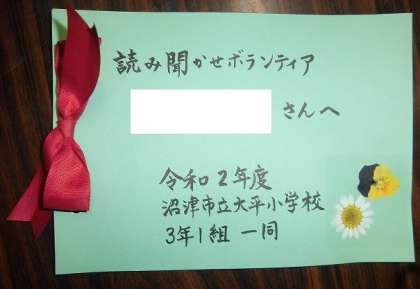 読み聞かせボランティア
さんへ
令和2年度
沼津市立大平小学校
3年1組 一同